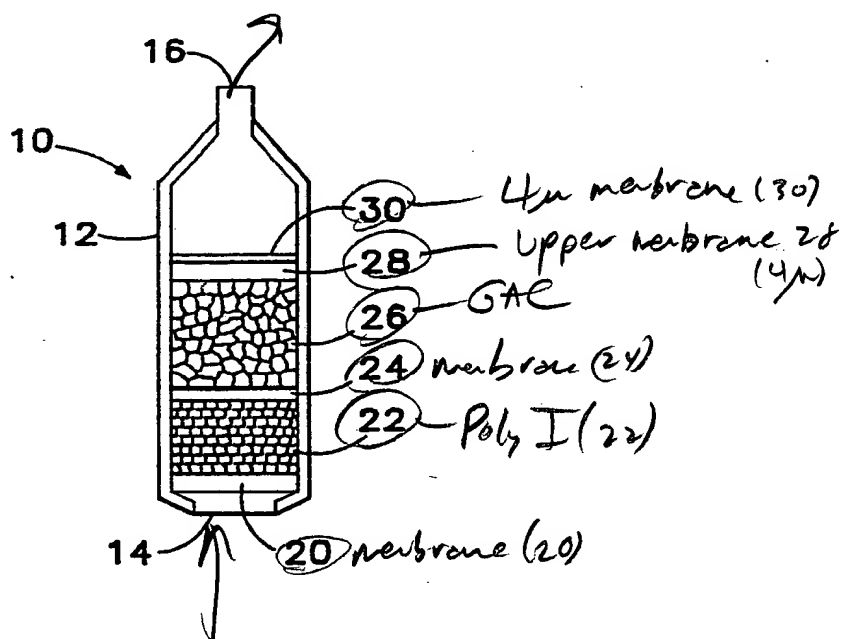 16
10
12
30 4μ membrane (30)
28 Upper membrane 28
(4μ)
26 GAC
24 membrane (24)
22 Poly I (22)
14
20 membrane (20)